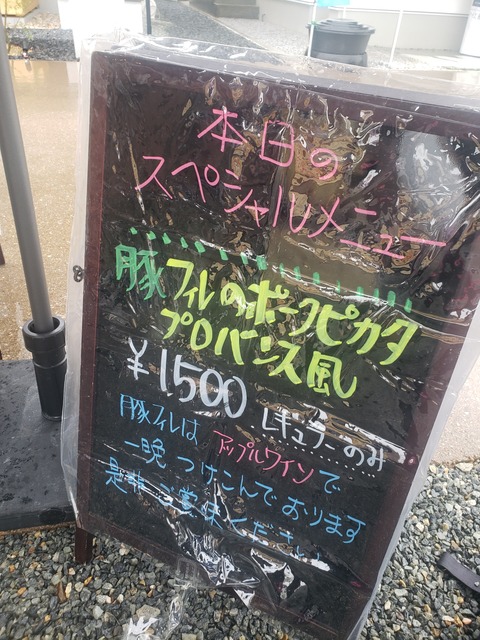 本日の
スペシャルメニュー
豚フィレのポークピカタ
プロバンス風
¥1,500 レギュラーのみ
豚フィレは アップルワインで
一晩 つけこんでおります
是非 ご賞味ください